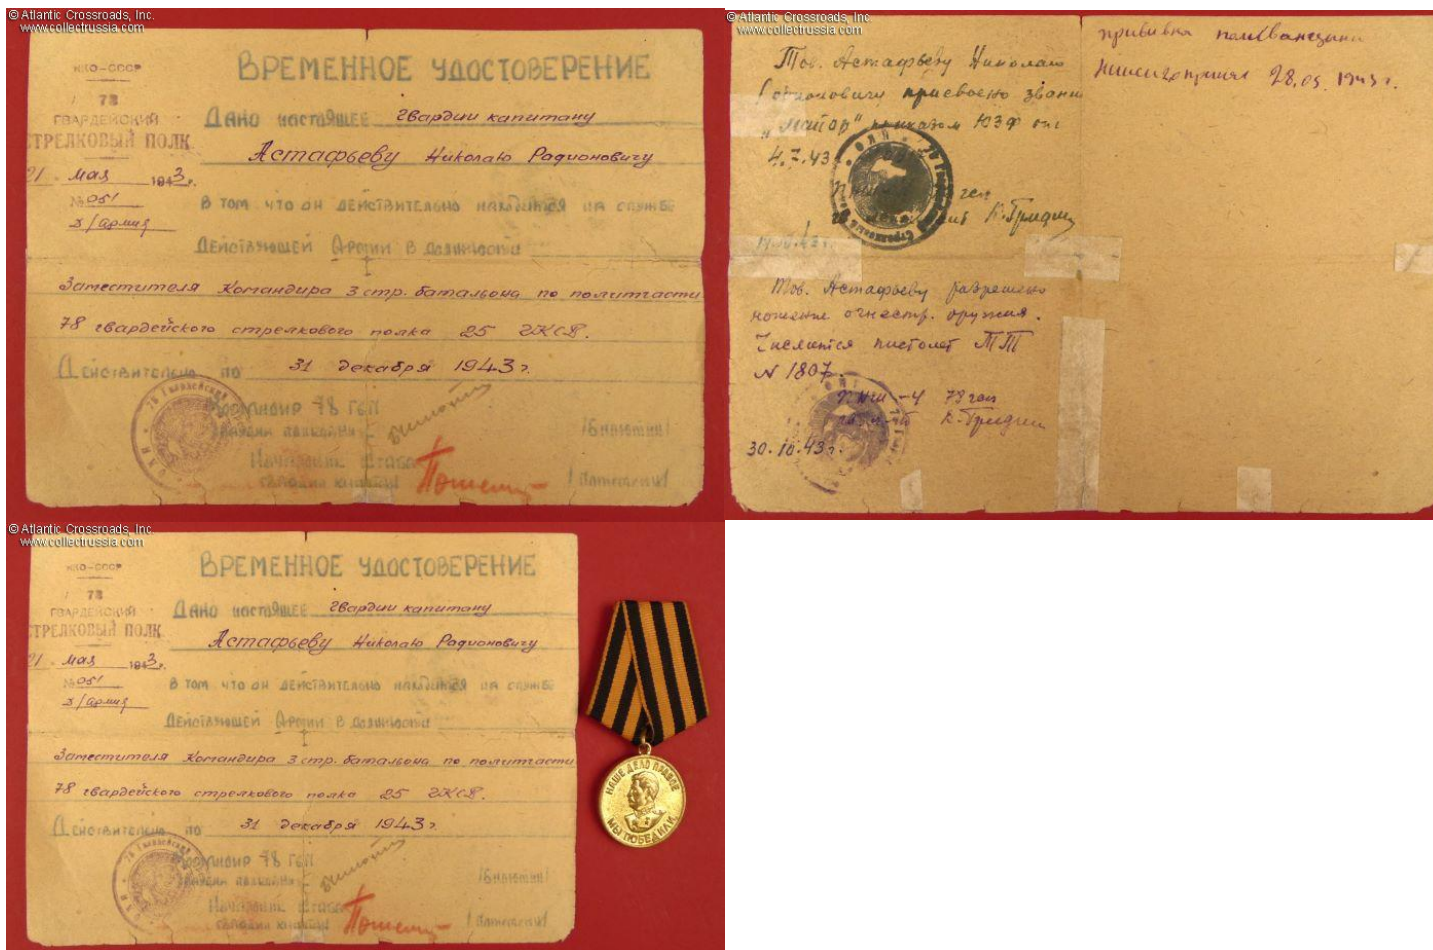 © Atlantic Crossroads, Inc.
www.collectrussia.com
НКО-СССР
78
ГВАРДЕЙСКИЙ
СТРЕЛКОВЫЙ ПОЛК
21 мая 1943 г.
№ 051
д/армия
ВРЕМЕННОЕ УДОСТОВЕРЕНИЕ
Дано настоящее гвардии капитану
Астафьеву Николаю Родионовичу
в том что он действительно находится на службе
Действующей Армии в должности
Заместителя Командира 3 стр. батальона по политчасти
78 гвардейского стрелкового полка 25 ГКСД.
Действительно по 31 декабря 1943 г.
78 Гвардейский
Командир 78 ГСП
гвардии
/Билютин/
Начальник Штаба
гвардии
© Atlantic Crossroads, Inc.
www.collectrussia.com
Тов. Астафьеву Николаю
Родионовичу присвоено звание
"Майор" приказом ЮЗФ от
4.7.43
К. Гридин
Тов. Астафьеву разрешено
ношение огнестр. оружия.
Числится пистолет ТТ
N 1807.
ПНШ-4 78 гсп
К. Гридин
30.10.43 г.
прививка
28.05.1943 г.
© Atlantic Crossroads, Inc.
www.collectrussia.com
НКО-СССР
78
ГВАРДЕЙСКИЙ
СТРЕЛКОВЫЙ ПОЛК
21 мая 1943 г.
№ 051
д/армия
ВРЕМЕННОЕ УДОСТОВЕРЕНИЕ
Дано настоящее гвардии капитану
Астафьеву Николаю Родионовичу
в том что он действительно находится на службе
Действующей Армии в должности
Заместителя Командира 3 стр. батальона по политчасти
78 гвардейского стрелкового полка 25 ГКСД.
Действительно по 31 декабря 1943 г.
78 Гвардейский
Командир 78 ГСП
гвардии
/Билютин/
Начальник Штаба
гвардии
НАШЕ ДЕЛО ПРАВОЕ
МЫ ПОБЕДИЛИ